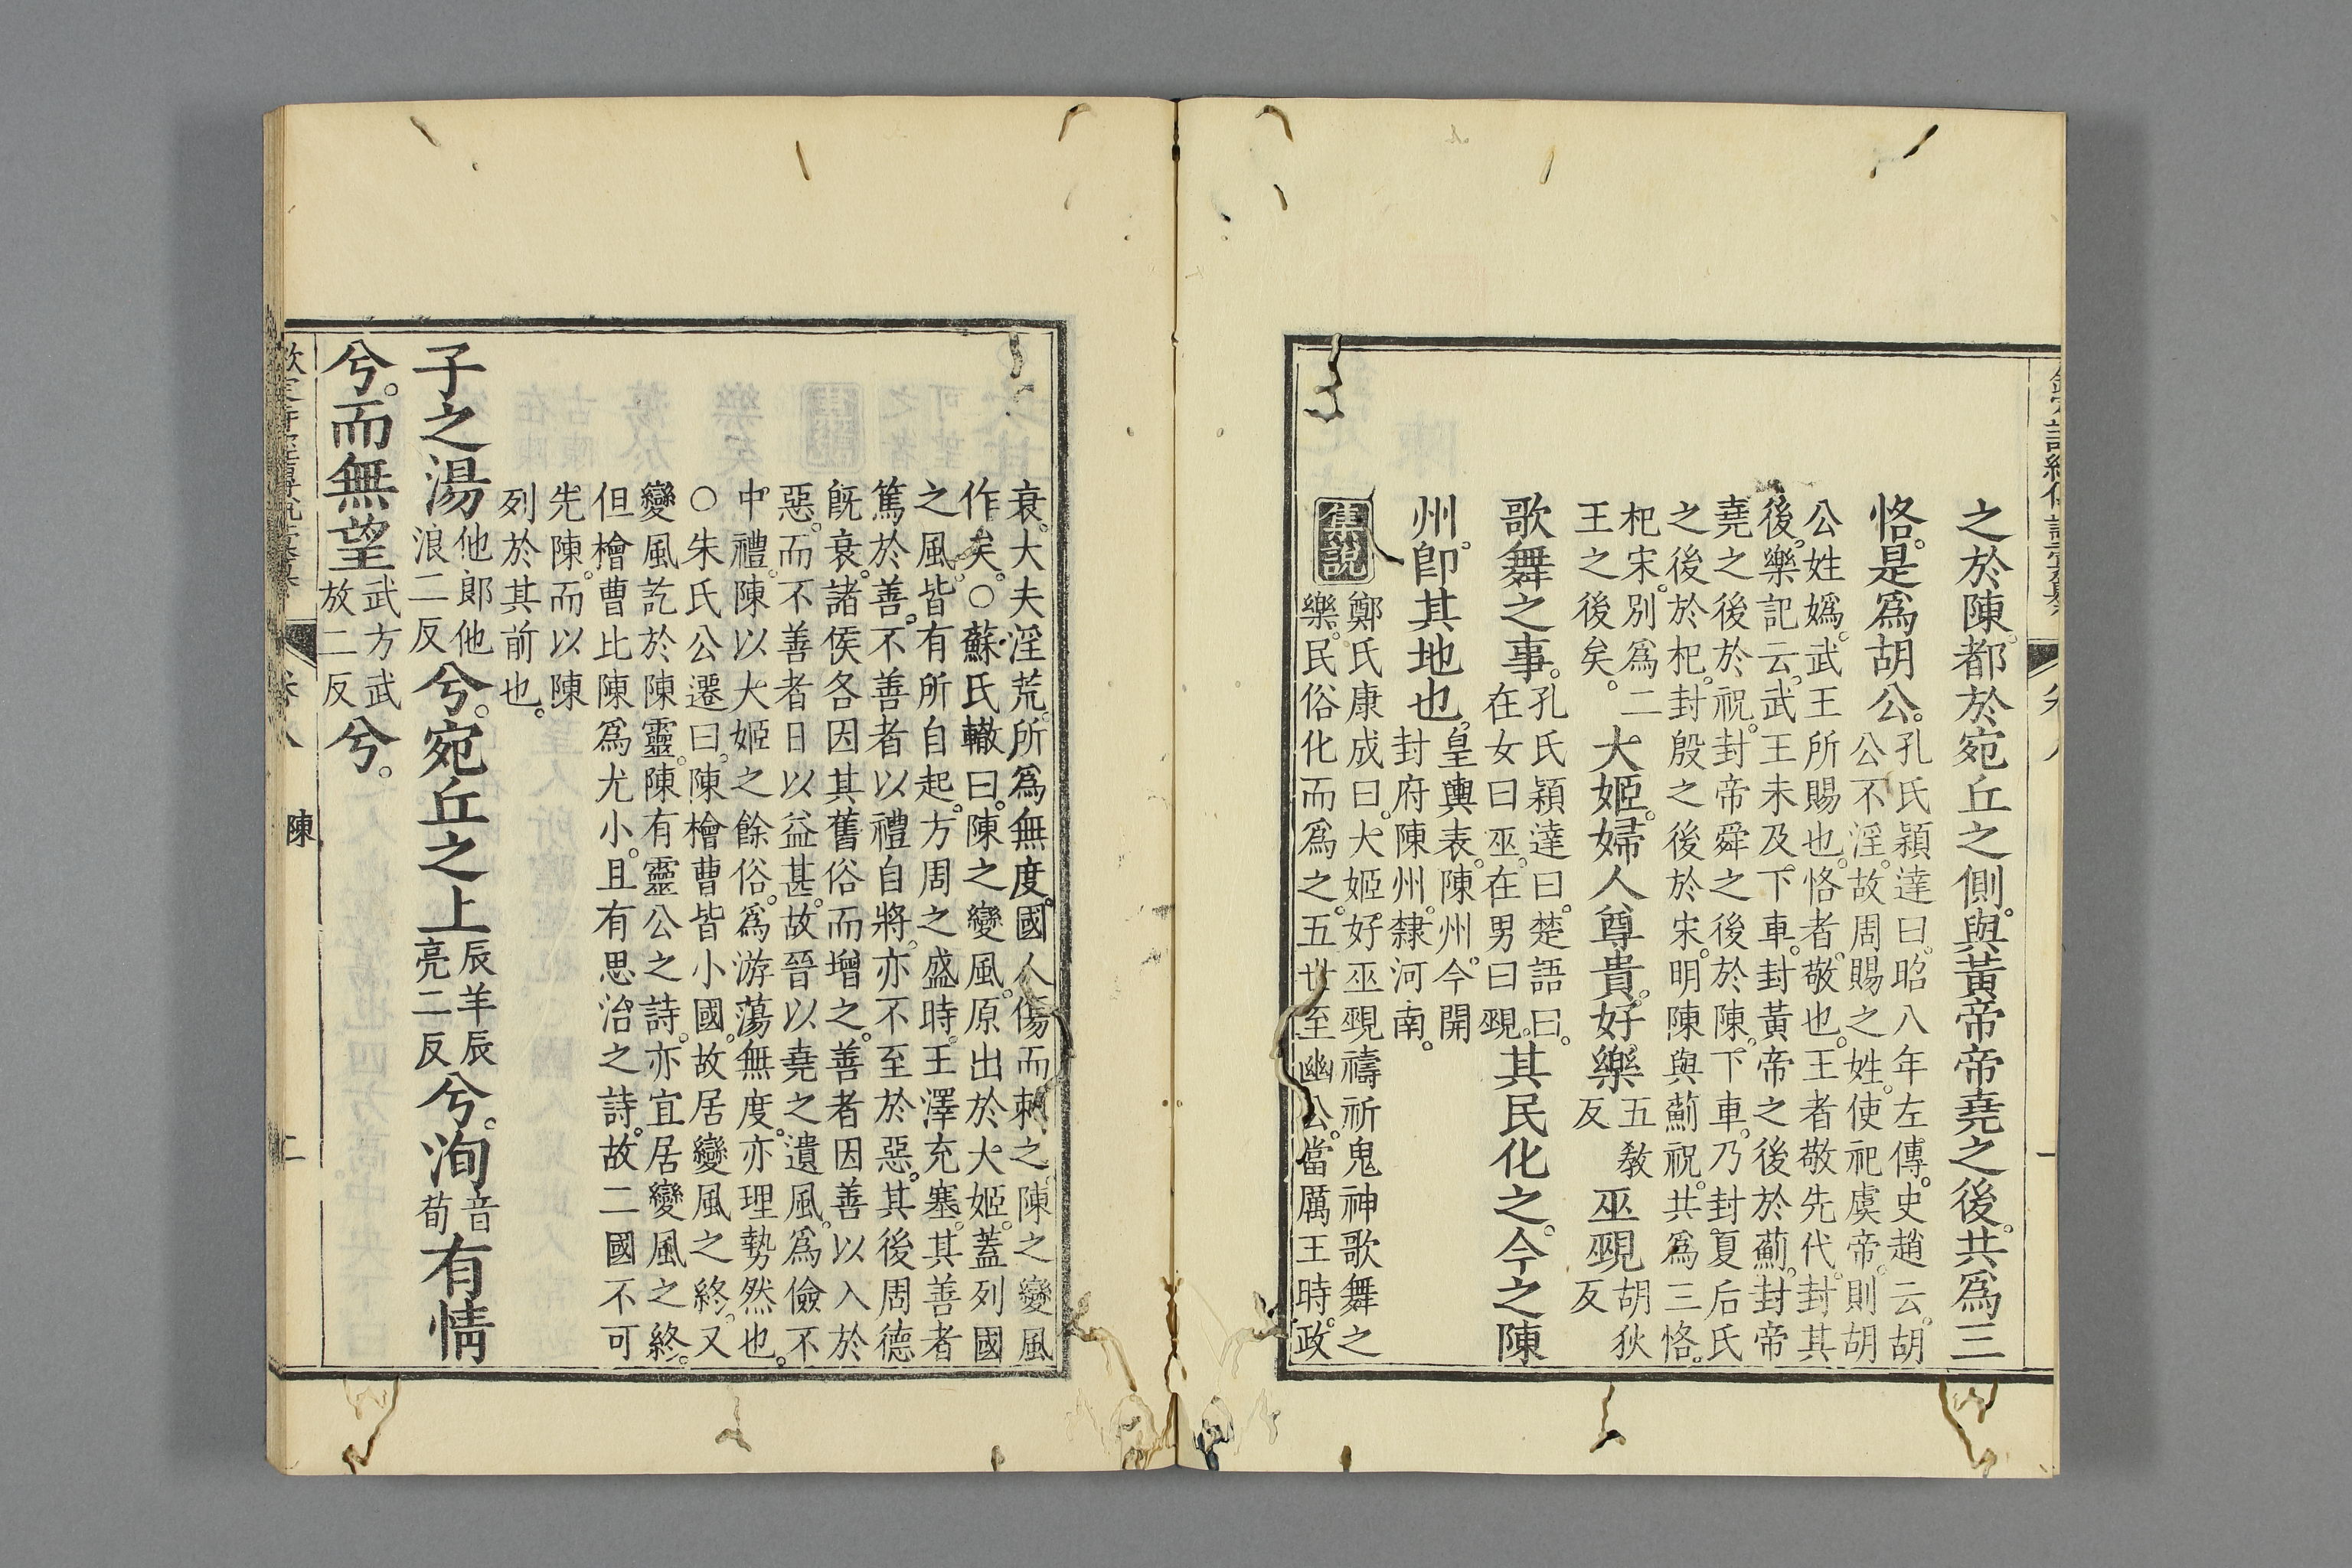 之於陳。都於宛丘之側。與黃帝帝堯之後。共爲三
恪。是爲胡公。
孔氏穎達曰。昭八年左傳。史趙云。胡
公不淫。故周賜之姓。使祀虞帝。則胡
公姓嬀。武王所賜也。恪者。敬也。王者敬先代。封其
後。樂記云。武王未及下車。封黃帝之後於薊。封帝
堯之後於祝。封帝舜之後於陳。下車。乃封夏后氏
之後於杞。封殷之後於宋。明陳與薊祝。共爲三恪。
杞宋。別爲二
王之後矣。
大姬。婦人尊貴。好樂
五教
反
巫覡
胡狄
反
歌舞之事。
孔氏穎達曰。楚語曰。
在女曰巫。在男曰覡。
其民化之。今之陳
州。卽其地也。
皇輿表。陳州。今開
封府陳州。隸河南。
集說
鄭氏康成曰。大姬好巫覡禱祈鬼神歌舞之
樂。民俗化而爲之。五世至幽公。當厲王時。政
衰。大夫淫荒。所爲無度。國人傷而刺之。陳之變風
作矣。○蘇氏轍曰。陳之變風。原出於大姬。蓋列國
之風。皆有所自起。方周之盛時。王澤充塞。其善者
篤於善。不善者以禮自將。亦不至於惡。其後周德
旣衰。諸侯各因其舊俗而增之。善者因善以入於
惡。而不善者日以益甚。故晉以堯之遺風。爲儉不
中禮。陳以大姬之餘俗。爲游蕩無度。亦理勢然也。
○朱氏公遷曰。陳檜曹皆小國。故居變風之終。又
變風訖於陳靈。陳有靈公之詩。亦宜居變風之終。
但檜曹比陳爲尤小。且有思治之詩。故二國不可
先陳。而以陳
列於其前也。
子之湯
他郎他
浪二反
兮。宛丘之上
辰羊辰
亮二反
兮。洵
音
荀
有情
兮。而無望
武方武
放二反
兮。
陳
二